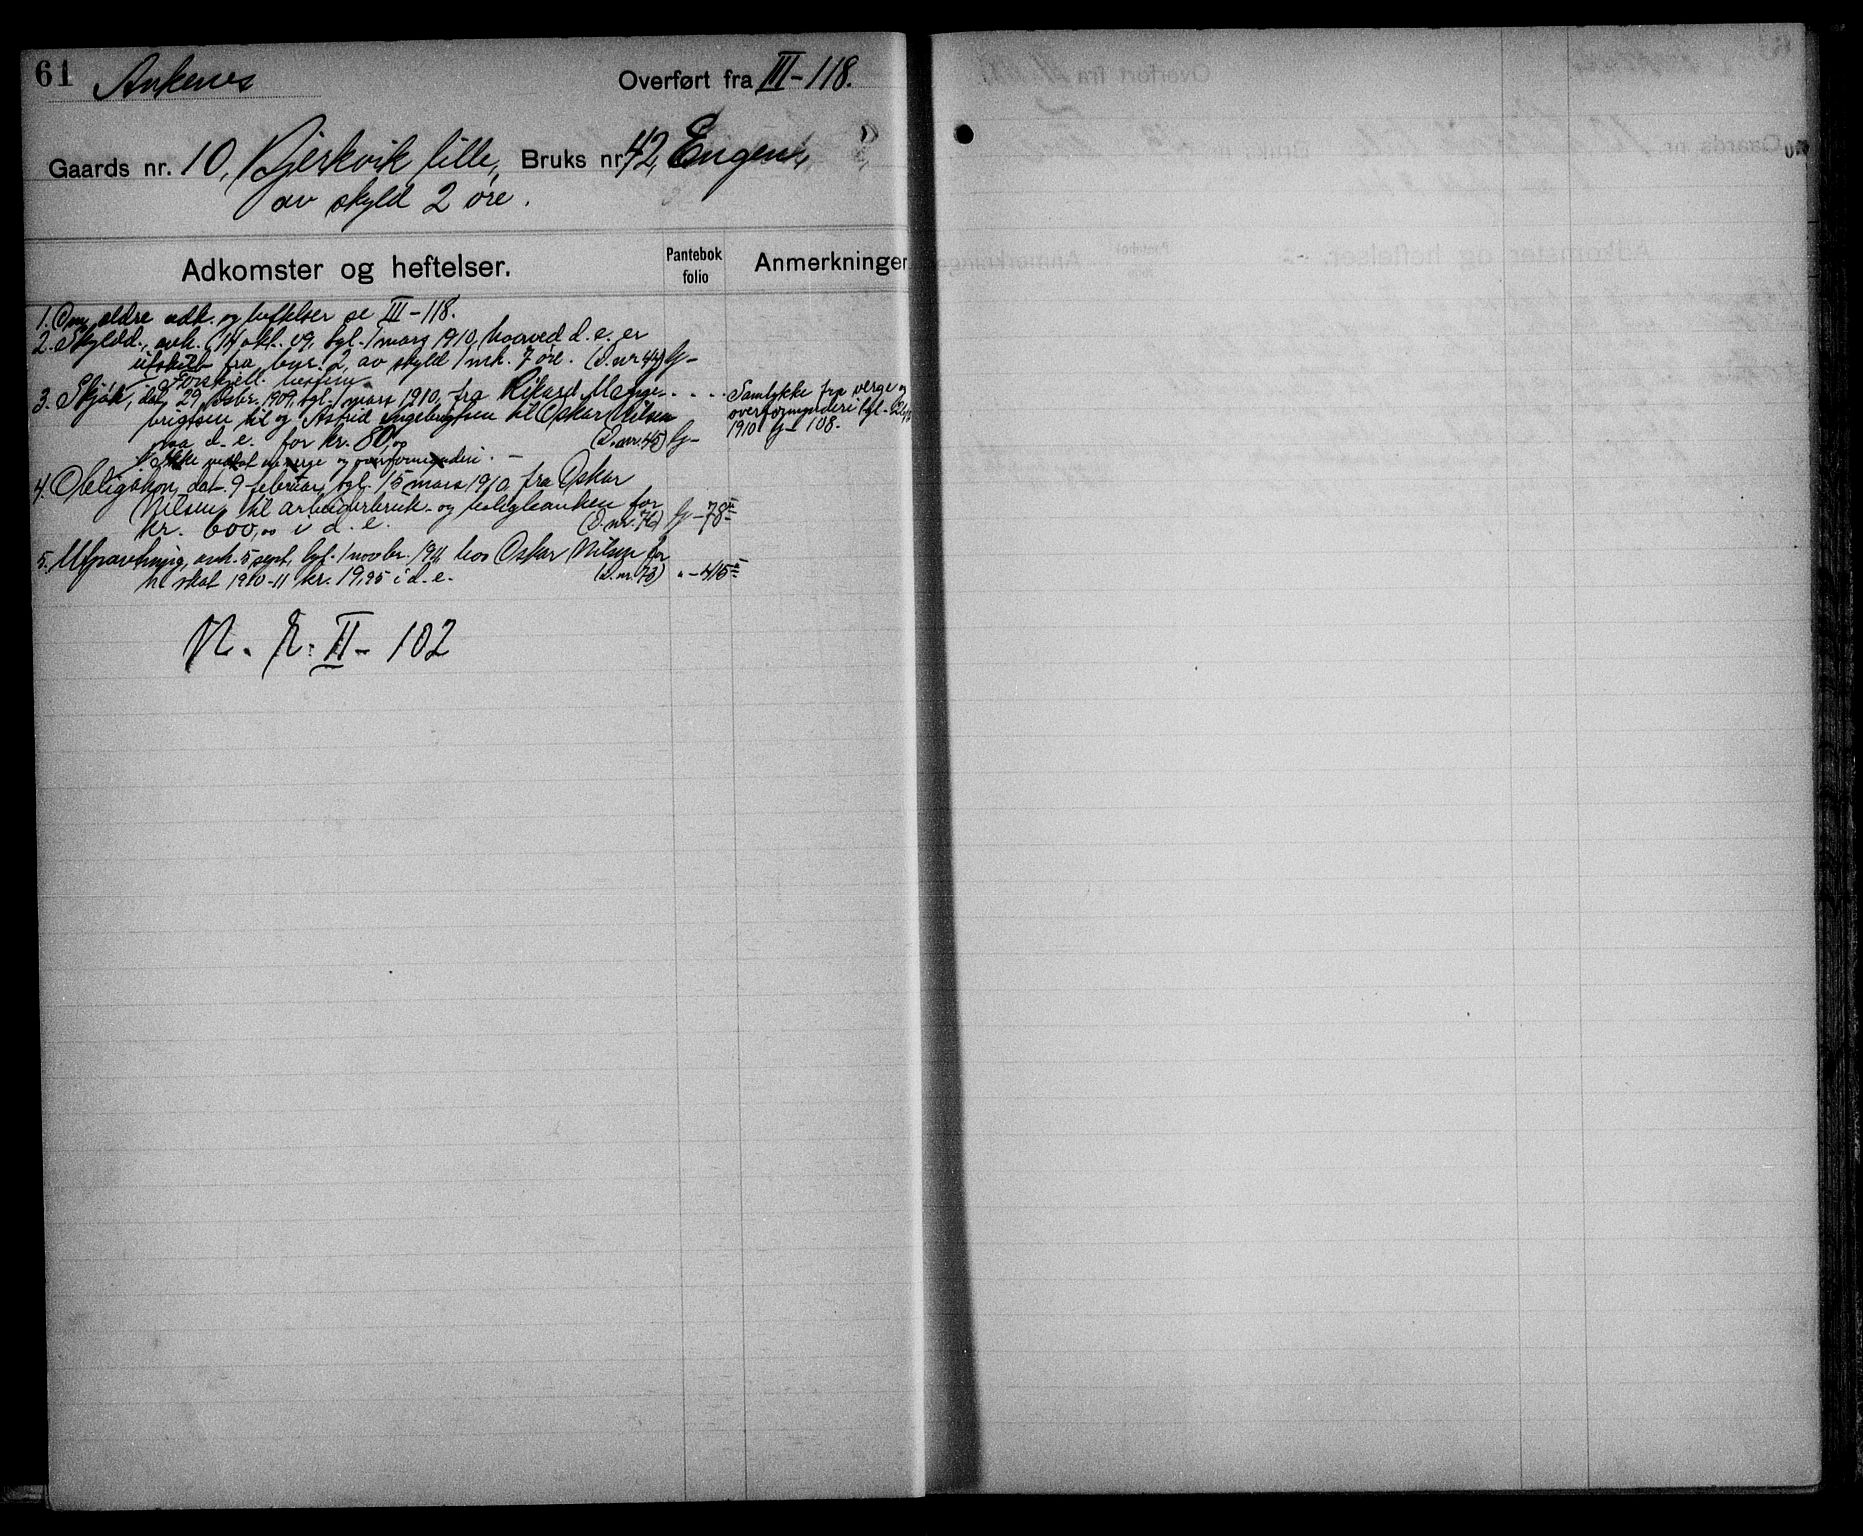 61 Ankenes Overført fra III-118.
Gaards nr. 10, Bjerkvik lille, Bruks nr. 42, Engen,
av skyld 2 øre.
Adkomster og heftelser. Pantebok folio Anmerkninger
1. Om ældre adk. og heftelser se III-118.
2. Skyldd., avh. 14 okt. 09, tgl. 1 mars 1910, hvorved d. e. er
utskilt fra bnr. 2, av skyld 1 mk. 7 øre. (D. nr. 44) G-
3. Skjøte, dat. 29 1909, tgl. 1 mars 1910, fra Rikard Mange- . . . .
brigtsen til og Astrid Ingebrigtsen til Oskar Nilsen
paa d. e. for kr. 80,00 (D. nr. 45) G-
Samtykke fra verge og
overformynderi tgl.
1910 G- 108.
Ikke vedtat av verge og overformynderi. -
4. Obligation, dat. 9 februar, tgl. 15 mars 1910, fra Oskar
Nilsen til arbeiderbruk- og boligbanken for
kr. 600,00 i d. e. (D. nr. 76) G-78
5. Utpantning, avh. 5 sept., tgl. 1 novbr. 1911, hos Oskar Nilsen for
skat 1910-11 kr. 19,95 i d. e. (D. nr. 73) " - 415
N. R. II - 102